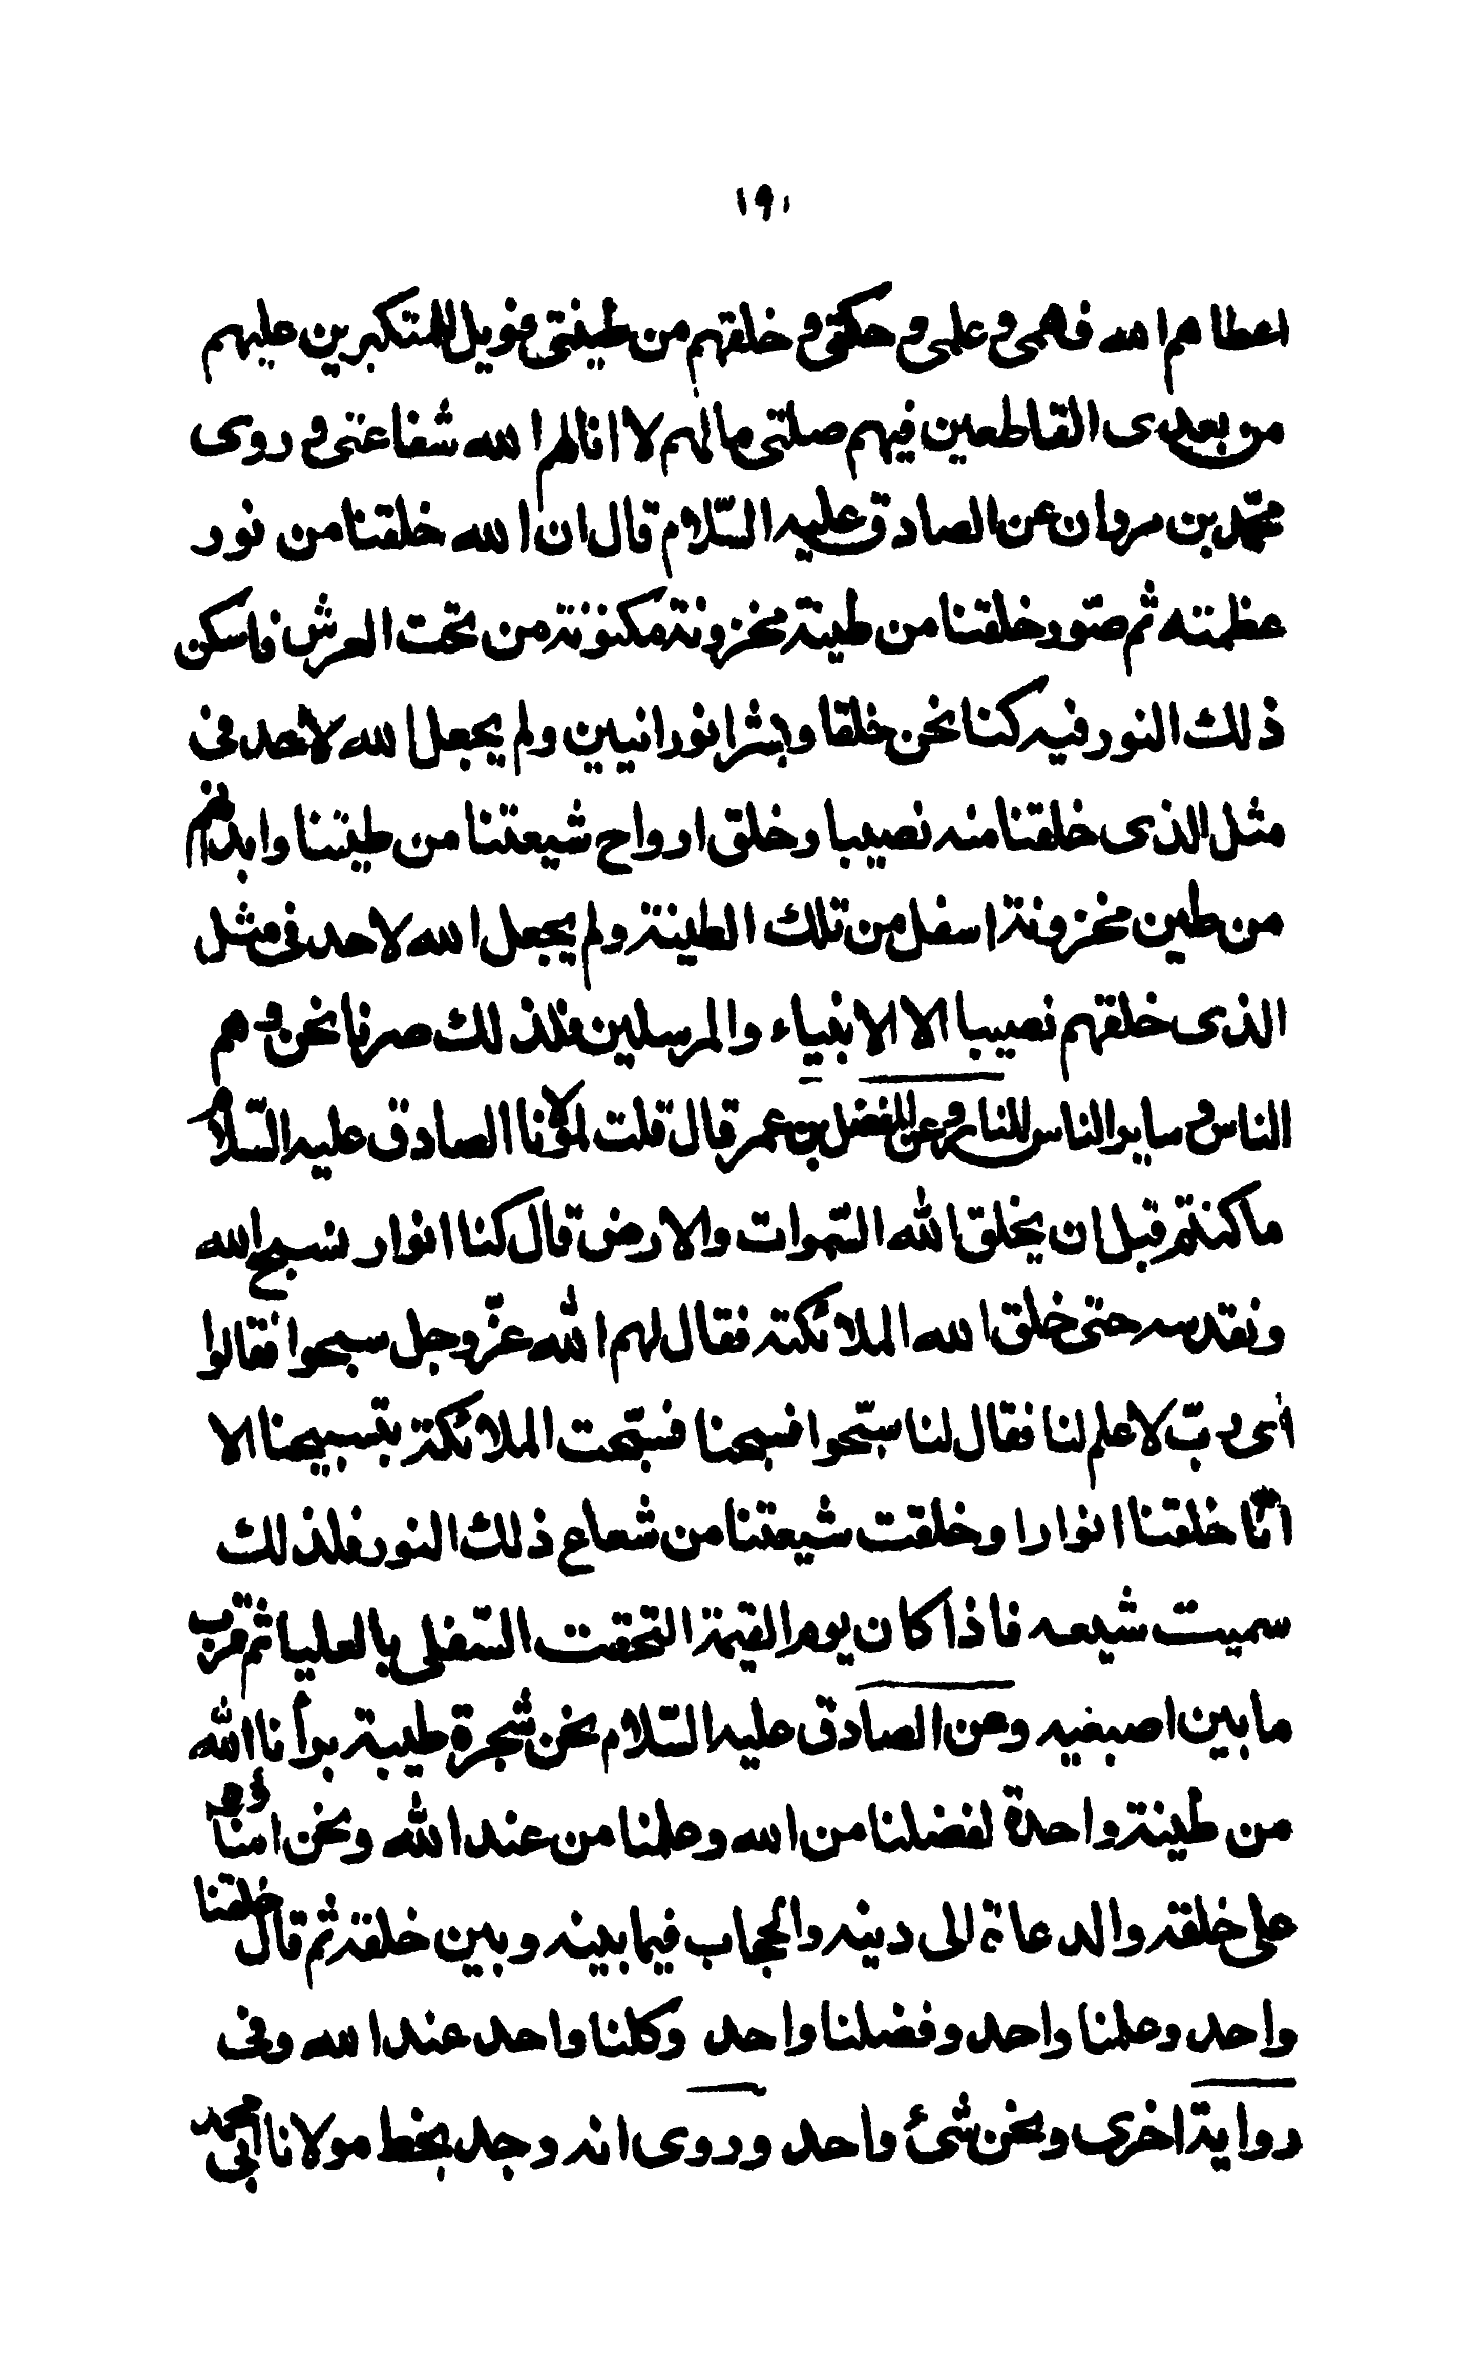 ١٩١
اعطاهم الله فهمی و علمی و حکمتی و خلقهم من طینتی فویل للمتکبرین علیهم
من بعدی القاطعین فیهم صلتی ما لهم لا انالهم الله شفاعتی و روی
محمّد بن مروان عن الصادق علیه السّلام قال ان الله خلقنا من نور
عظمته ثم صوّر خلقنا من طینة مخزونة مکنونة من تحت العرش فاسکن
ذلك النور فیه کنا نحن خلقا و بشرا نورانیین ولم یجعل الله لاحد فی
مثل الذی خلقنا منه نصیبا و خلق ارواح شیعتنا من طینتنا وابدانهم
من طین مخزونة اسفل من تلك الطینة ولم یجعل الله لاحد فی مثل
الذی خلقهم نصیبا الا الانبیاء والمرسلین فلذلك صرنا نحن و هم
الناس و سایر الناس للنار و عن المفضل بن عمر قال قلت لمولانا الصادق علیه السّلام
ما کنتم قبل ان یخلق الله السّموات والارض قال کنا انوار نسبح الله
ونقدسه حتی خلق الله الملائکته فقال لهم الله عزّ وجل سبحوا فقالوا
أی ربّ لا علم لنا فقال لنا سبّحوا فسبحنا فسبّحت الملائکة بتسبیحنا الا
انّا خلقنا انوارا وخلقت شیعتنا من شعاع ذلك النور فلذلك
سمیت شیعه فاذا کان یوم القیمة التحقت السّفلی بالعلیا ثم قرب
ما بین اصبغیه وعن الصادق علیه السّلام نحن شجرة طیبة برأنا الله
من طینة واحدة لفضلنا من الله وعلمنا من عند الله ونحن امنأوه
علی خلقه والدعاة الی دینه والحجاب فیما بینه وبین خلقه ثم قال خلقنا
واحد وعلمنا واحد وفضلنا واحد وکلنا واحد عند الله وفی
روایة اخری ونحن شیئ واحد وروی انه وجد بخط مولانا ابی محمد